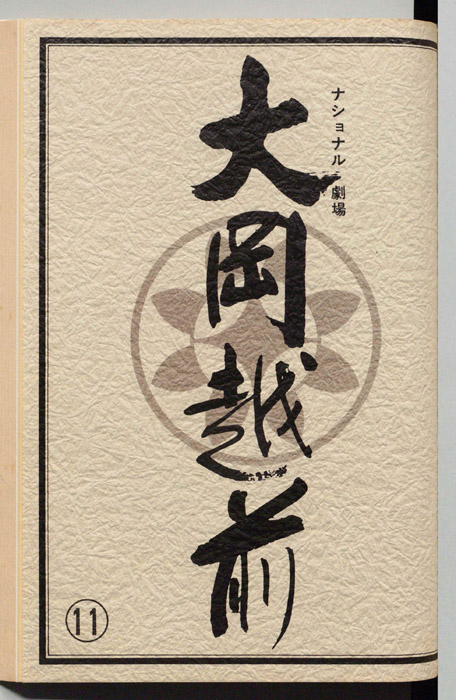 ナショナル劇場
大岡越前
⑪